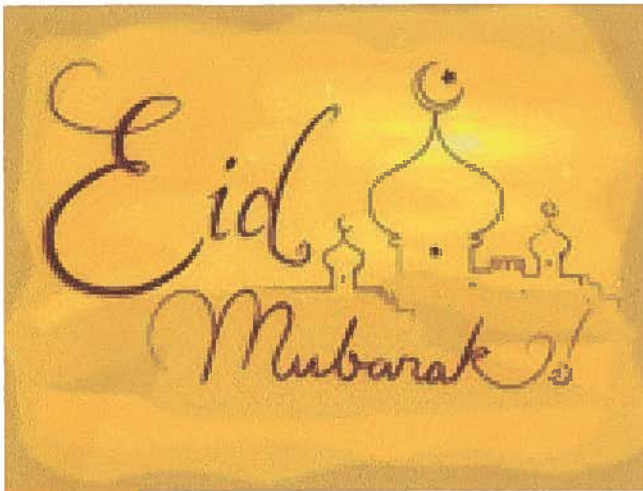 Eid
Mubarak!